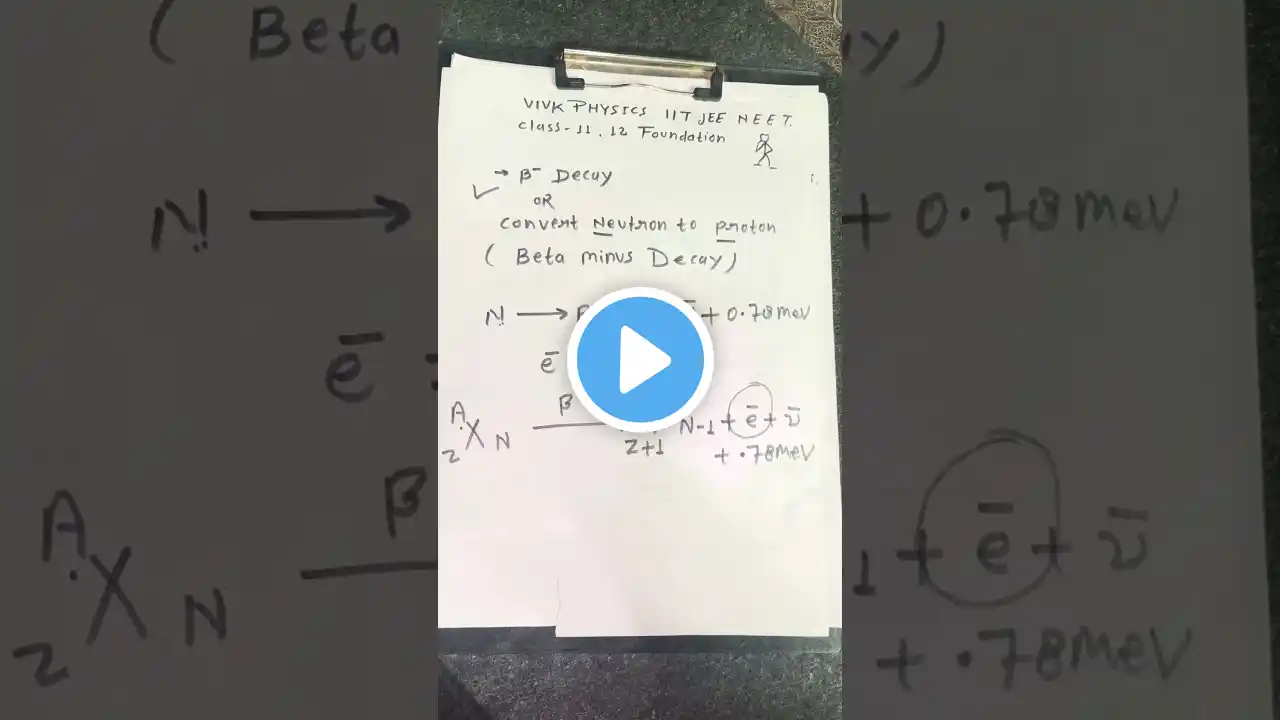 VIVK PHYSICS IIT JEE NEET.
class-11, 12 Foundation
→ β⁻ Decay
OR
convert Neutron to proton
(Beta minus Decay)
N → P ν̄ + 0.78 meV
e⁻
A
X N β N-1 + e⁻ + ν̄
Z Z+1 + .78 meV